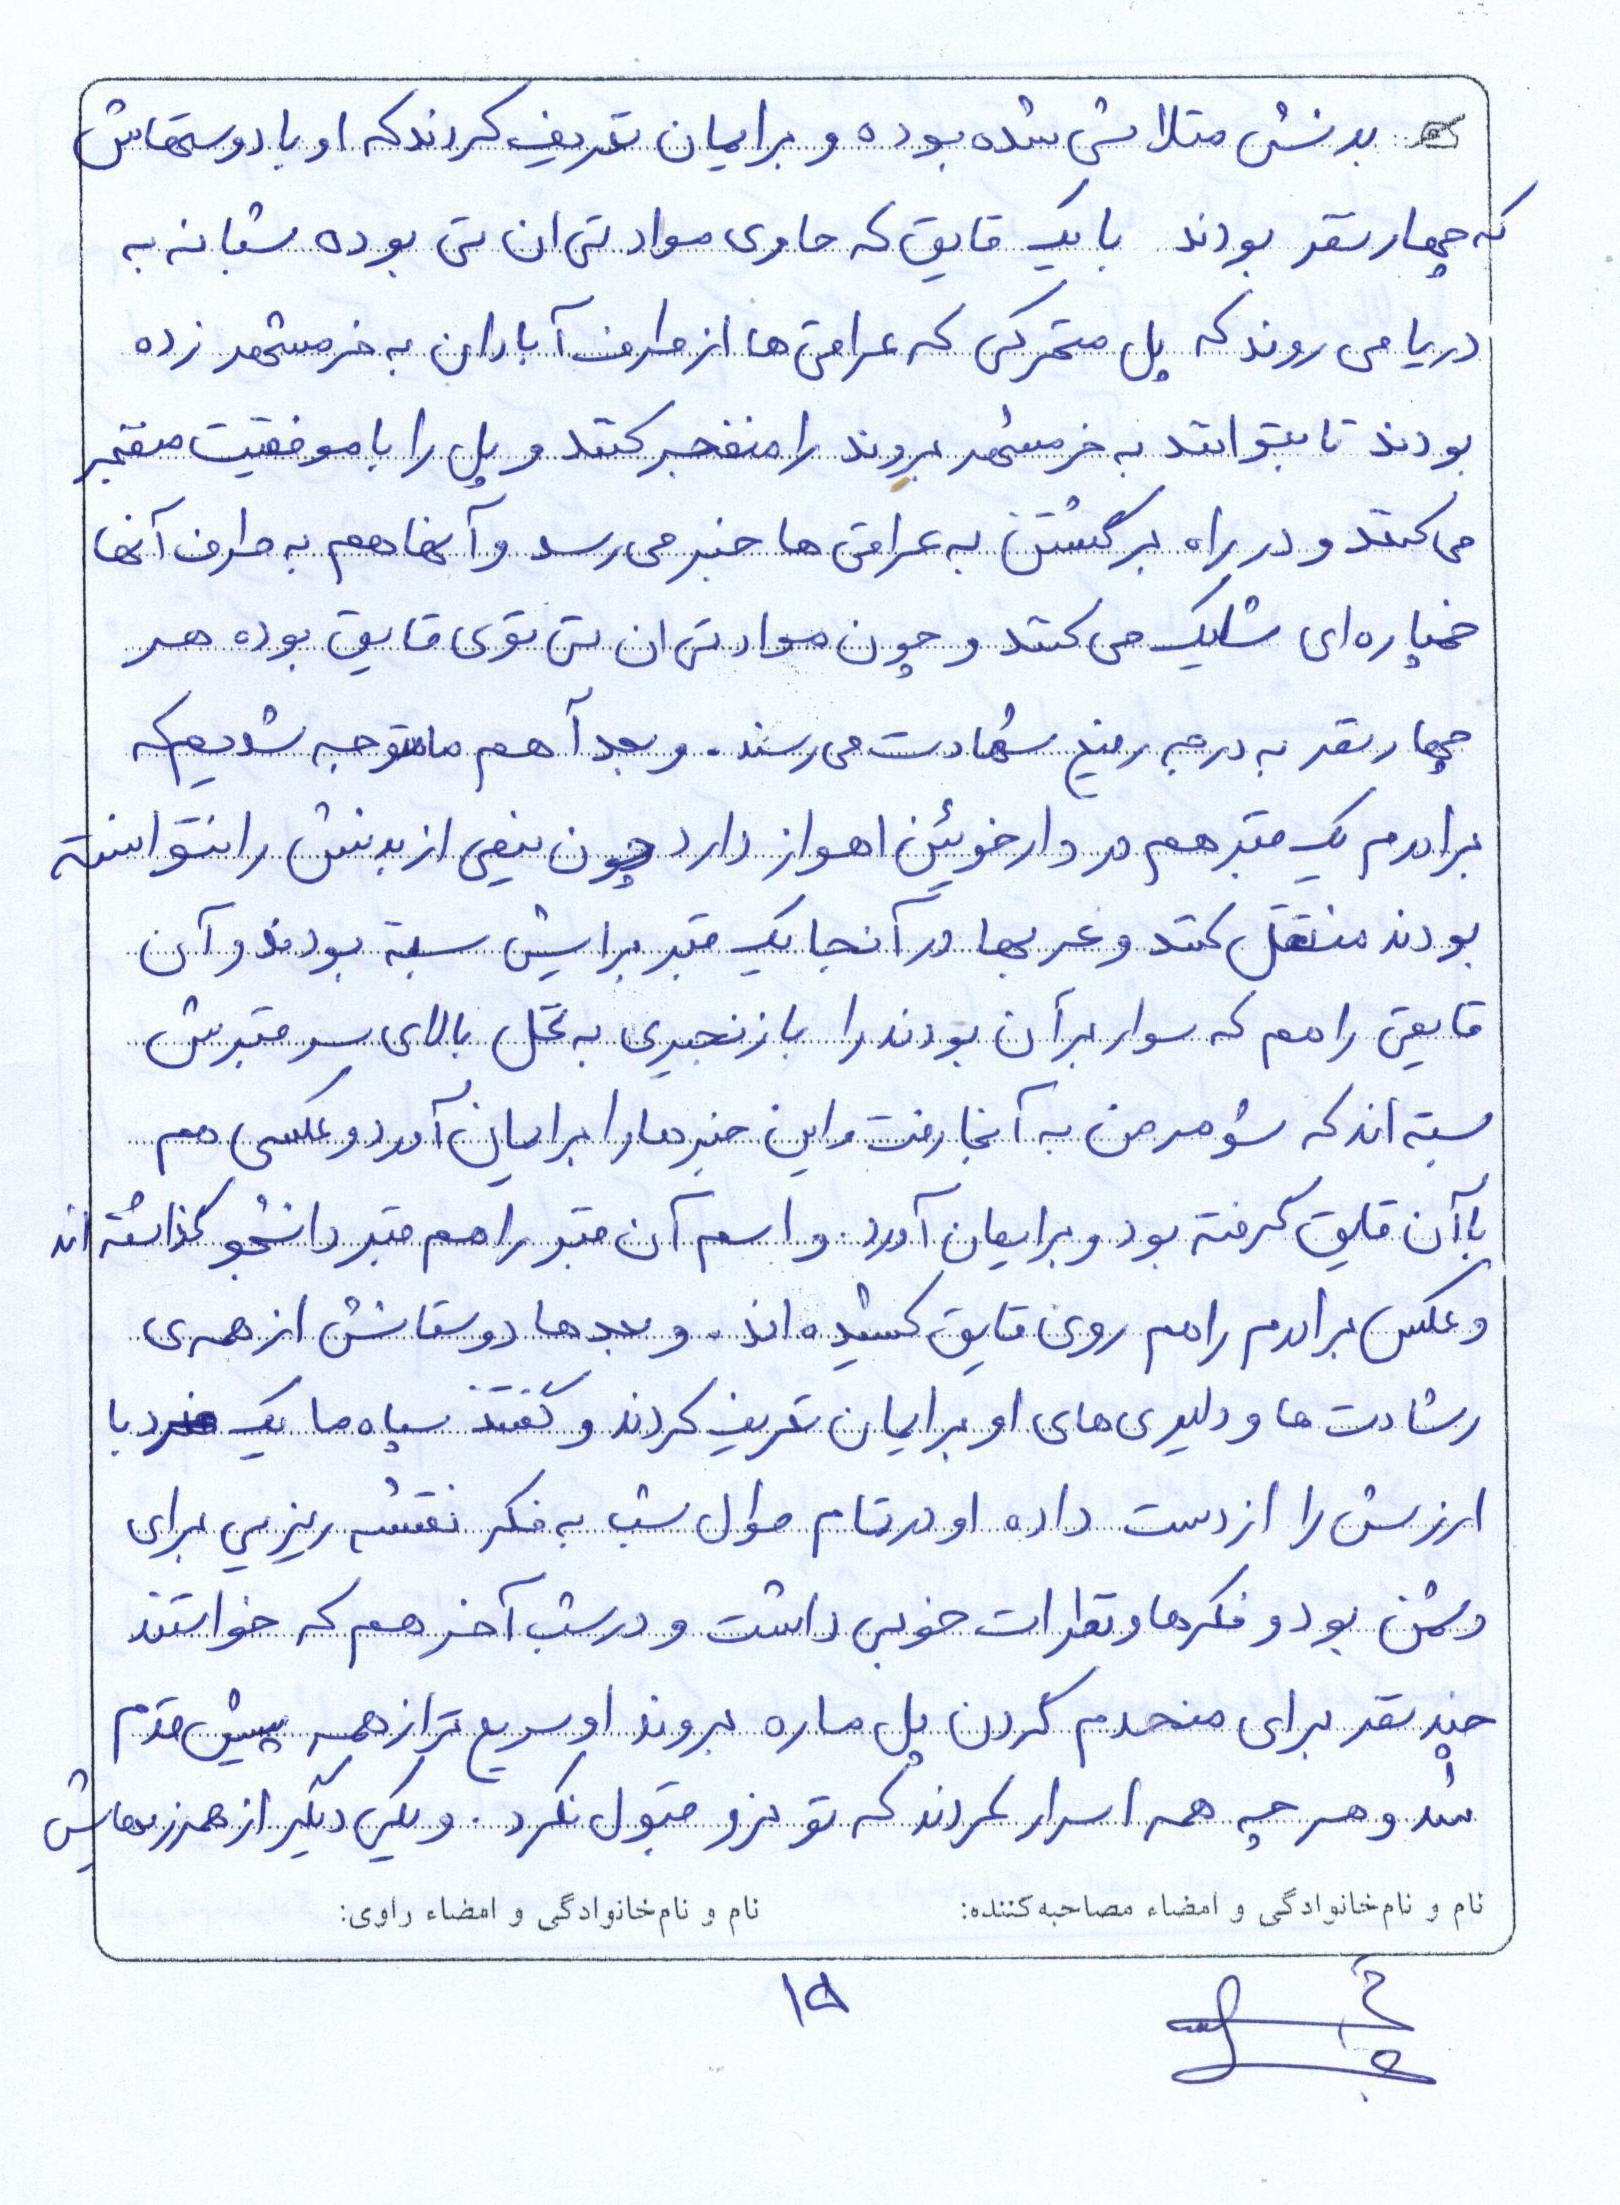 بدنش متلاشی شده بوده و برایمان تعریف کردند که او با دوستهاش
که چهار نفر بودند با یک قایق که حاوی مواد تی ان تی بوده شبانه به
دریا می روند که پل متحرکی که عراقی ها از طرف آبادان به خرمشهر زده
بودند تا بتوانند به خرمشهر بروند را منفجر کنند و پل را با موفقیت منفجر
می کنند و در راه برگشتن به عراقی ها خبر می رسد و آنها هم به طرف آنها
خمپاره ای شلیک می کنند و چون مواد تی ان تی توی قایق بوده هر
چهار نفر به درجه رفیع شهادت می رسند. و بعداً هم ما متوجه شدیم که
برادرم یک قبر هم در دارخوئین اهواز دارد چون نیمی از بدنش را نتوانسته
بودند منتقل کنند و عربها در آنجا یک قبر برایش بسته بودند و آن
قایقی را هم که سوار بر آن بودند را با زنجیری به نخل بالای سر قبرش
بسته اند که شوهر من به آنجا رفت و این خبرها را برایمان آورد و عکسی هم
با آن قایق گرفته بود و برایمان آورد. و اسم آن قبر را هم قبر دانشجو گذاشته اند
و عکس برادرم را هم روی قایق کشیده اند. و بعدها دوستانش از همه ی
رشادت ها و دلیری های او برایمان تعریف کردند و گفتند سپاه ما یک فرد با
ارزش را از دست داده او در تمام طول شب به فکر نقشه ریزیی برای
دشمن بود و فکرها و نظرات خوبی داشت و در شب آخر هم که خواستند
چند نفر برای منحدم کردن پل ماره بروند او سریع تر از همه پیش قدم
شد و هر چه همه اسرار کردند که تو نرو قبول نکرد. و یکی دیگر از همرزمهایش
نام و نام‌خانوادگی و امضاء مصاحبه‌کننده: نام و نام‌خانوادگی و امضاء راوی:
۱۵